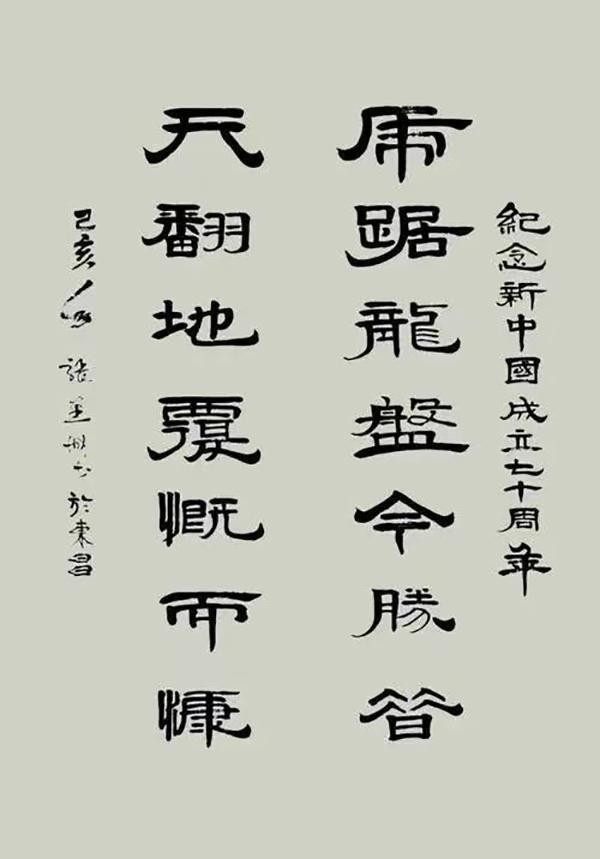 紀念新中國成立七十周年
虎踞龍盤今勝昔
天翻地覆慨而慷
己亥 張 書於東昌